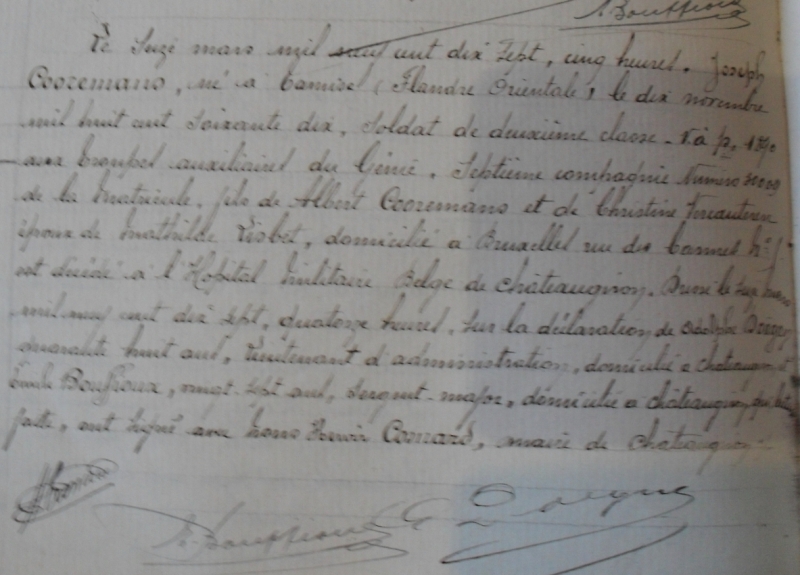 A. Bouffioux
Le Suze mars mil neuf cent dix sept, cinq heures. Joseph
Cooremans, né à Tamise (Flandre Orientale) le dix novembre
mil huit cent soixante dix, soldat de deuxième classe
aux troupes auxiliaires du Génie, Septième compagnie Numéro
de la matricule, fils de Albert Cooremans et de Christine
époux de Mathilde, domicilié à Bruxelles rue des
est décédé à l'Hopital Militaire Belge de châteaugiron. Dressé le
mil neuf cent dix sept, quatorze heures, sur la déclaration de
quarante huit ans, Lieutenant d'administration, domicilié à chateaugiron et
Emile Bouffioux, vingt-sept ans, sergent-major, domicilié à châteaugiron qui, lecture
faite, ont signé avec nous, maire de chateaugiron
A. Bouffioux